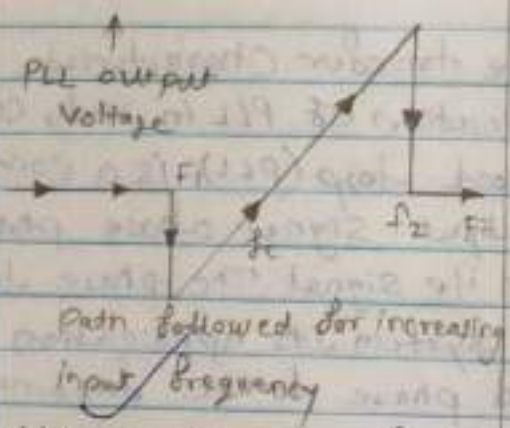 PLL output
Voltage
F1
fc
f2
Path followed for increasing
input frequency